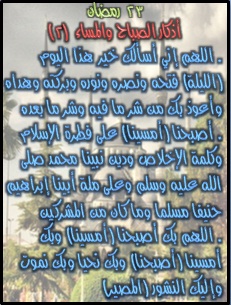 ٢٣ رمضان
أذكار الصباح والمساء (٢)
. اللهم إني أسألك خير هذا اليوم
(الليلة) فتحه ونصره ونوره وبركته وهداه
وأعوذ بك من شر ما فيه وشر ما بعده
. أصبحنا (أمسينا) على فطرة الإسلام
وكلمة الإخلاص ودين نبينا محمد صلى
الله عليه وسلم وعلى ملة أبينا إبراهيم
حنيفا مسلما وما كان من المشركين
. اللهم بك أصبحنا (أمسينا) وبك
أمسينا (أصبحنا) وبك نحيا وبك نموت
وإليك النشور (المصير)